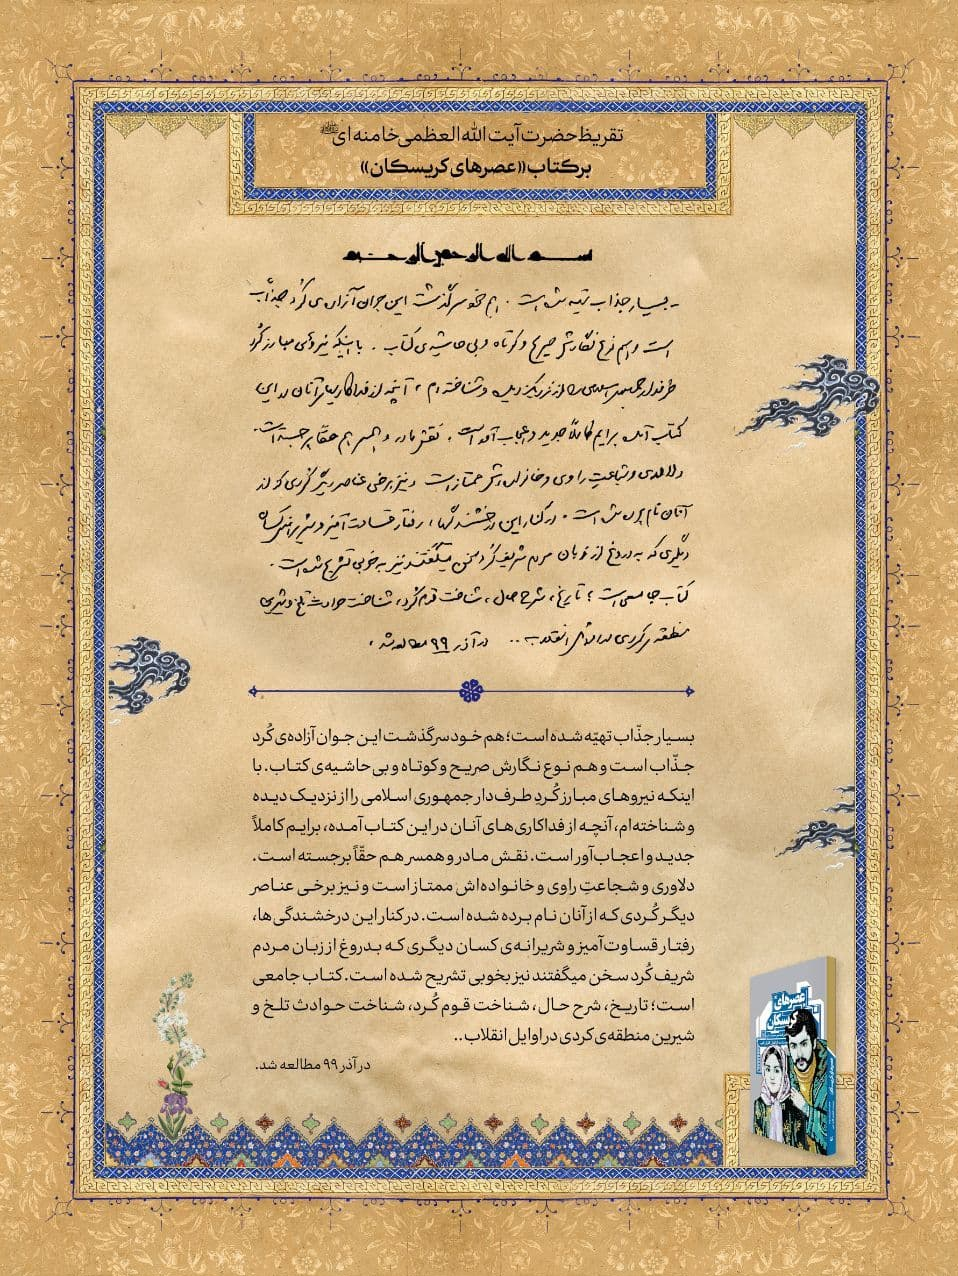 تقریظ حضرت آیت الله العظمی خامنه ای
بر کتاب «عصرهای کریسکان»
بسم الله الرحمن الرحیم
- بسیار جذاب تهیه شده است. هم خود سرگذشت این جوان آزاده‌ی کُرد جذّاب
است و هم نوع نگارش صریح و کوتاه و بی حاشیه‌ی کتاب. با اینکه نیروهای مبارز کُرد
طرفدار جمهوری اسلامی را از نزدیک دیده و شناخته ام، آنچه از فداکاریهای آنان در این
کتاب آمده برایم کاملاً جدید و اعجاب آور است. نقش مادر و همسر هم حقّاً برجسته است.
دلاوری و شجاعتِ راوی و خانواده اش ممتاز است و نیز برخی عناصر دیگر کُردی که از
آنان نام برده شده است. در کنار این درخشندگیها، رفتار قساوت آمیز و شریرانه‌ی کسان
دیگری که به دروغ از زبان مردم شریف کُرد سخن میگفتند نیز به خوبی تشریح شده است.
کتاب جامعی است؛ تاریخ، شرح حال، شناخت قوم کُرد، شناخت حوادث تلخ و شیرین
منطقه‌ی کردی در اوائل انقلاب .. در آذر ۹۹ مطالعه شد.
بسیار جذّاب تهیّه شده است؛ هم خود سرگذشت این جوان آزاده‌ی کُرد
جذّاب است و هم نوع نگارش صریح و کوتاه و بی حاشیه‌ی کتاب. با
اینکه نیروهای مبارز کُردِ طرف‌دار جمهوری اسلامی را از نزدیک دیده
و شناخته‌ام، آنچه از فداکاری‌های آنان در این کتاب آمده، برایم کاملاً
جدید و اعجاب‌آور است. نقش مادر و همسر هم حقّاً برجسته است.
دلاوری و شجاعتِ راوی و خانواده‌اش ممتاز است و نیز برخی عناصر
دیگر کُردی که از آنان نام برده شده است. در کنار این درخشندگی ها،
رفتار قساوت‌آمیز و شریرانه‌ی کسان دیگری که بدروغ از زبان مردم
شریف کُرد سخن میگفتند نیز بخوبی تشریح شده است. کتاب جامعی
است؛ تاریخ، شرح حال، شناخت قوم کُرد، شناخت حوادث تلخ و
شیرین منطقه‌ی کردی در اوایل انقلاب..
در آذر ۹۹ مطالعه شد.
عصرهای
کریسکان